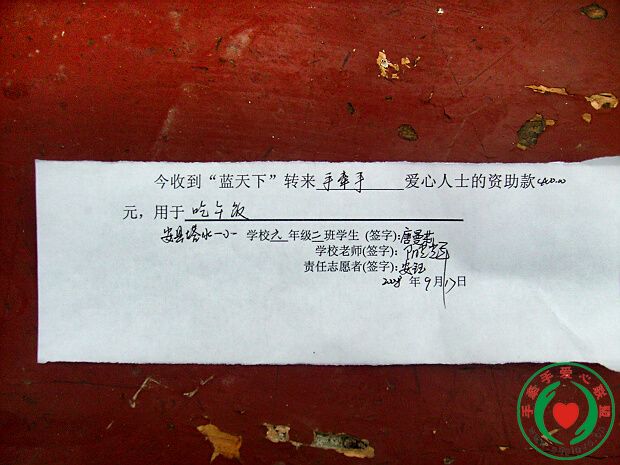 今收到“蓝天下”转来 手牵手 爱心人士的资助款400.00
元，用于 吃午饭
安县塔水一小 学校六年级二班学生 (签字):唐曼莉
学校老师(签字):
责任志愿者(签字):安钰
2008 年 9 月 17 日
手牵手爱心联盟